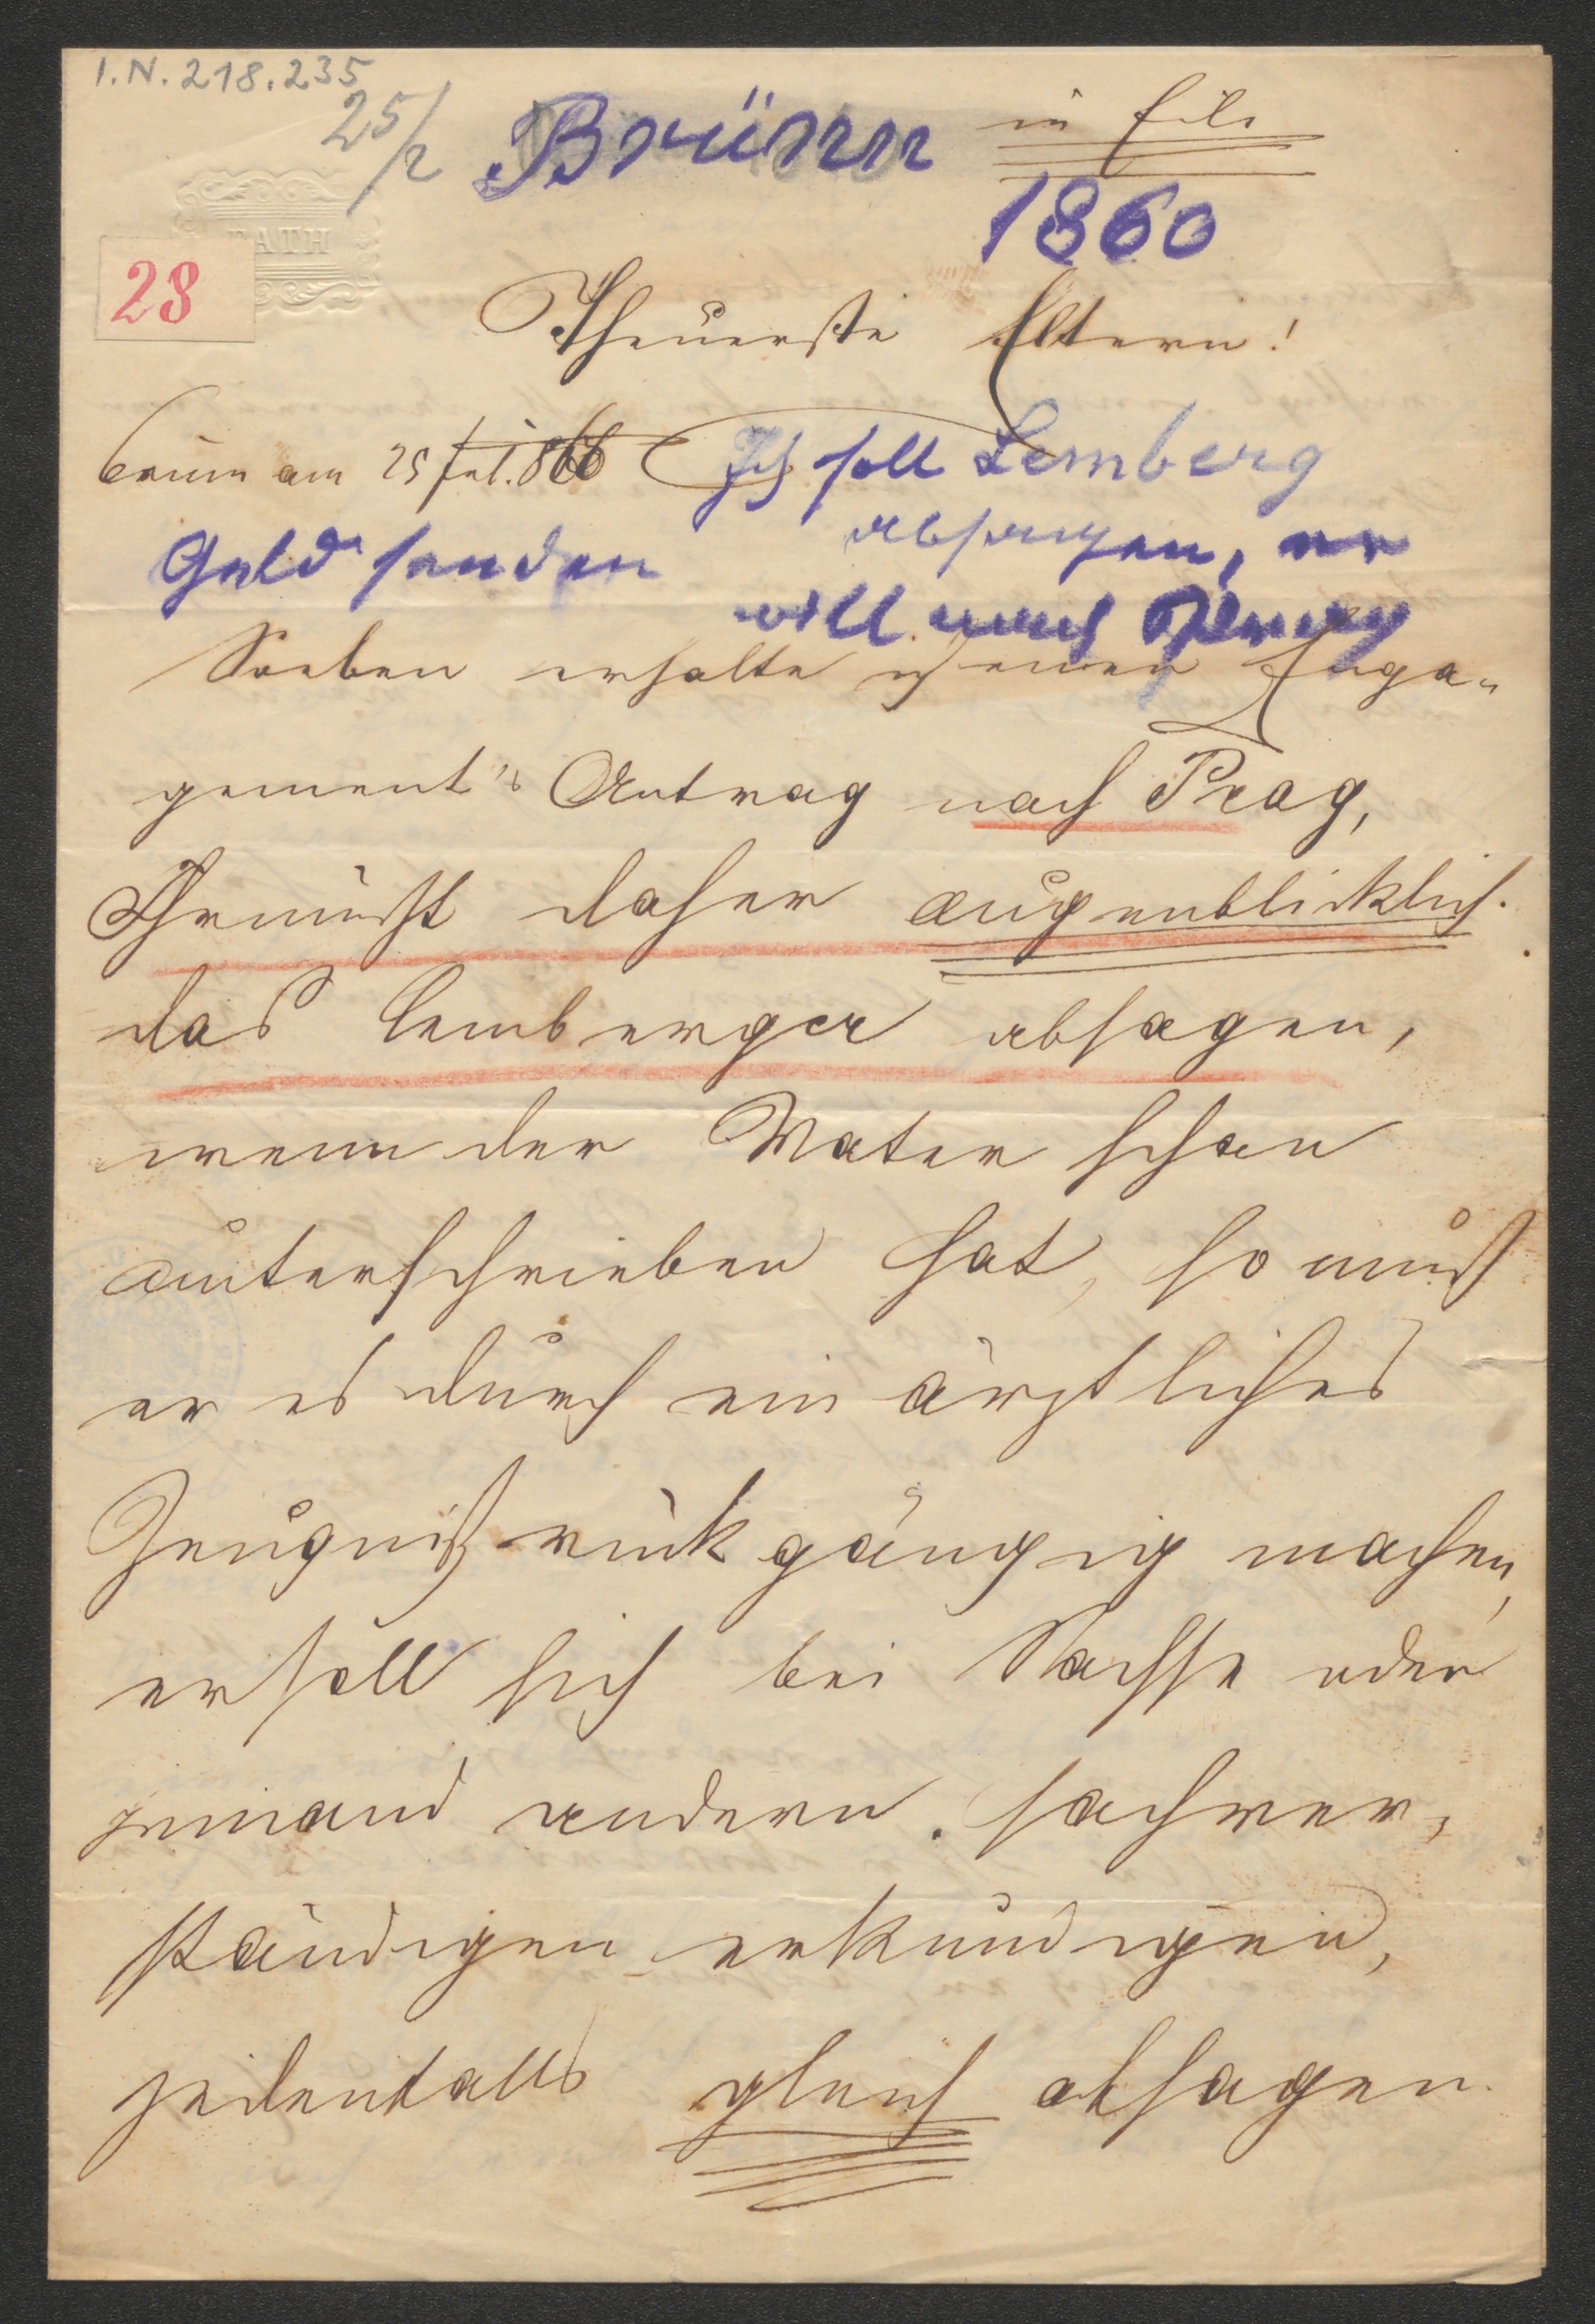 I.N. 218.235
25/2 Brünn in Eile
1860
BATH
28
Theuerste Eltern!
Brünn am 25 Feb. 860 Ich soll Lemberg
Geld senden absagen, er
will nach Prag
Soeben erhalte ich einen Enga-
gement's Antrag nach Prag,
Ihr müßt daher augenblicklich.
das Lemberger absagen,
wenn der Vater schon
unterschrieben hat, so muß
er es durch ein ärztliches
Zeugniß rükgängig machen,
er soll sich bei Sachse oder
jemand andern sachver-
ständigen erkundigen,
jedenfalls gleich absagen.